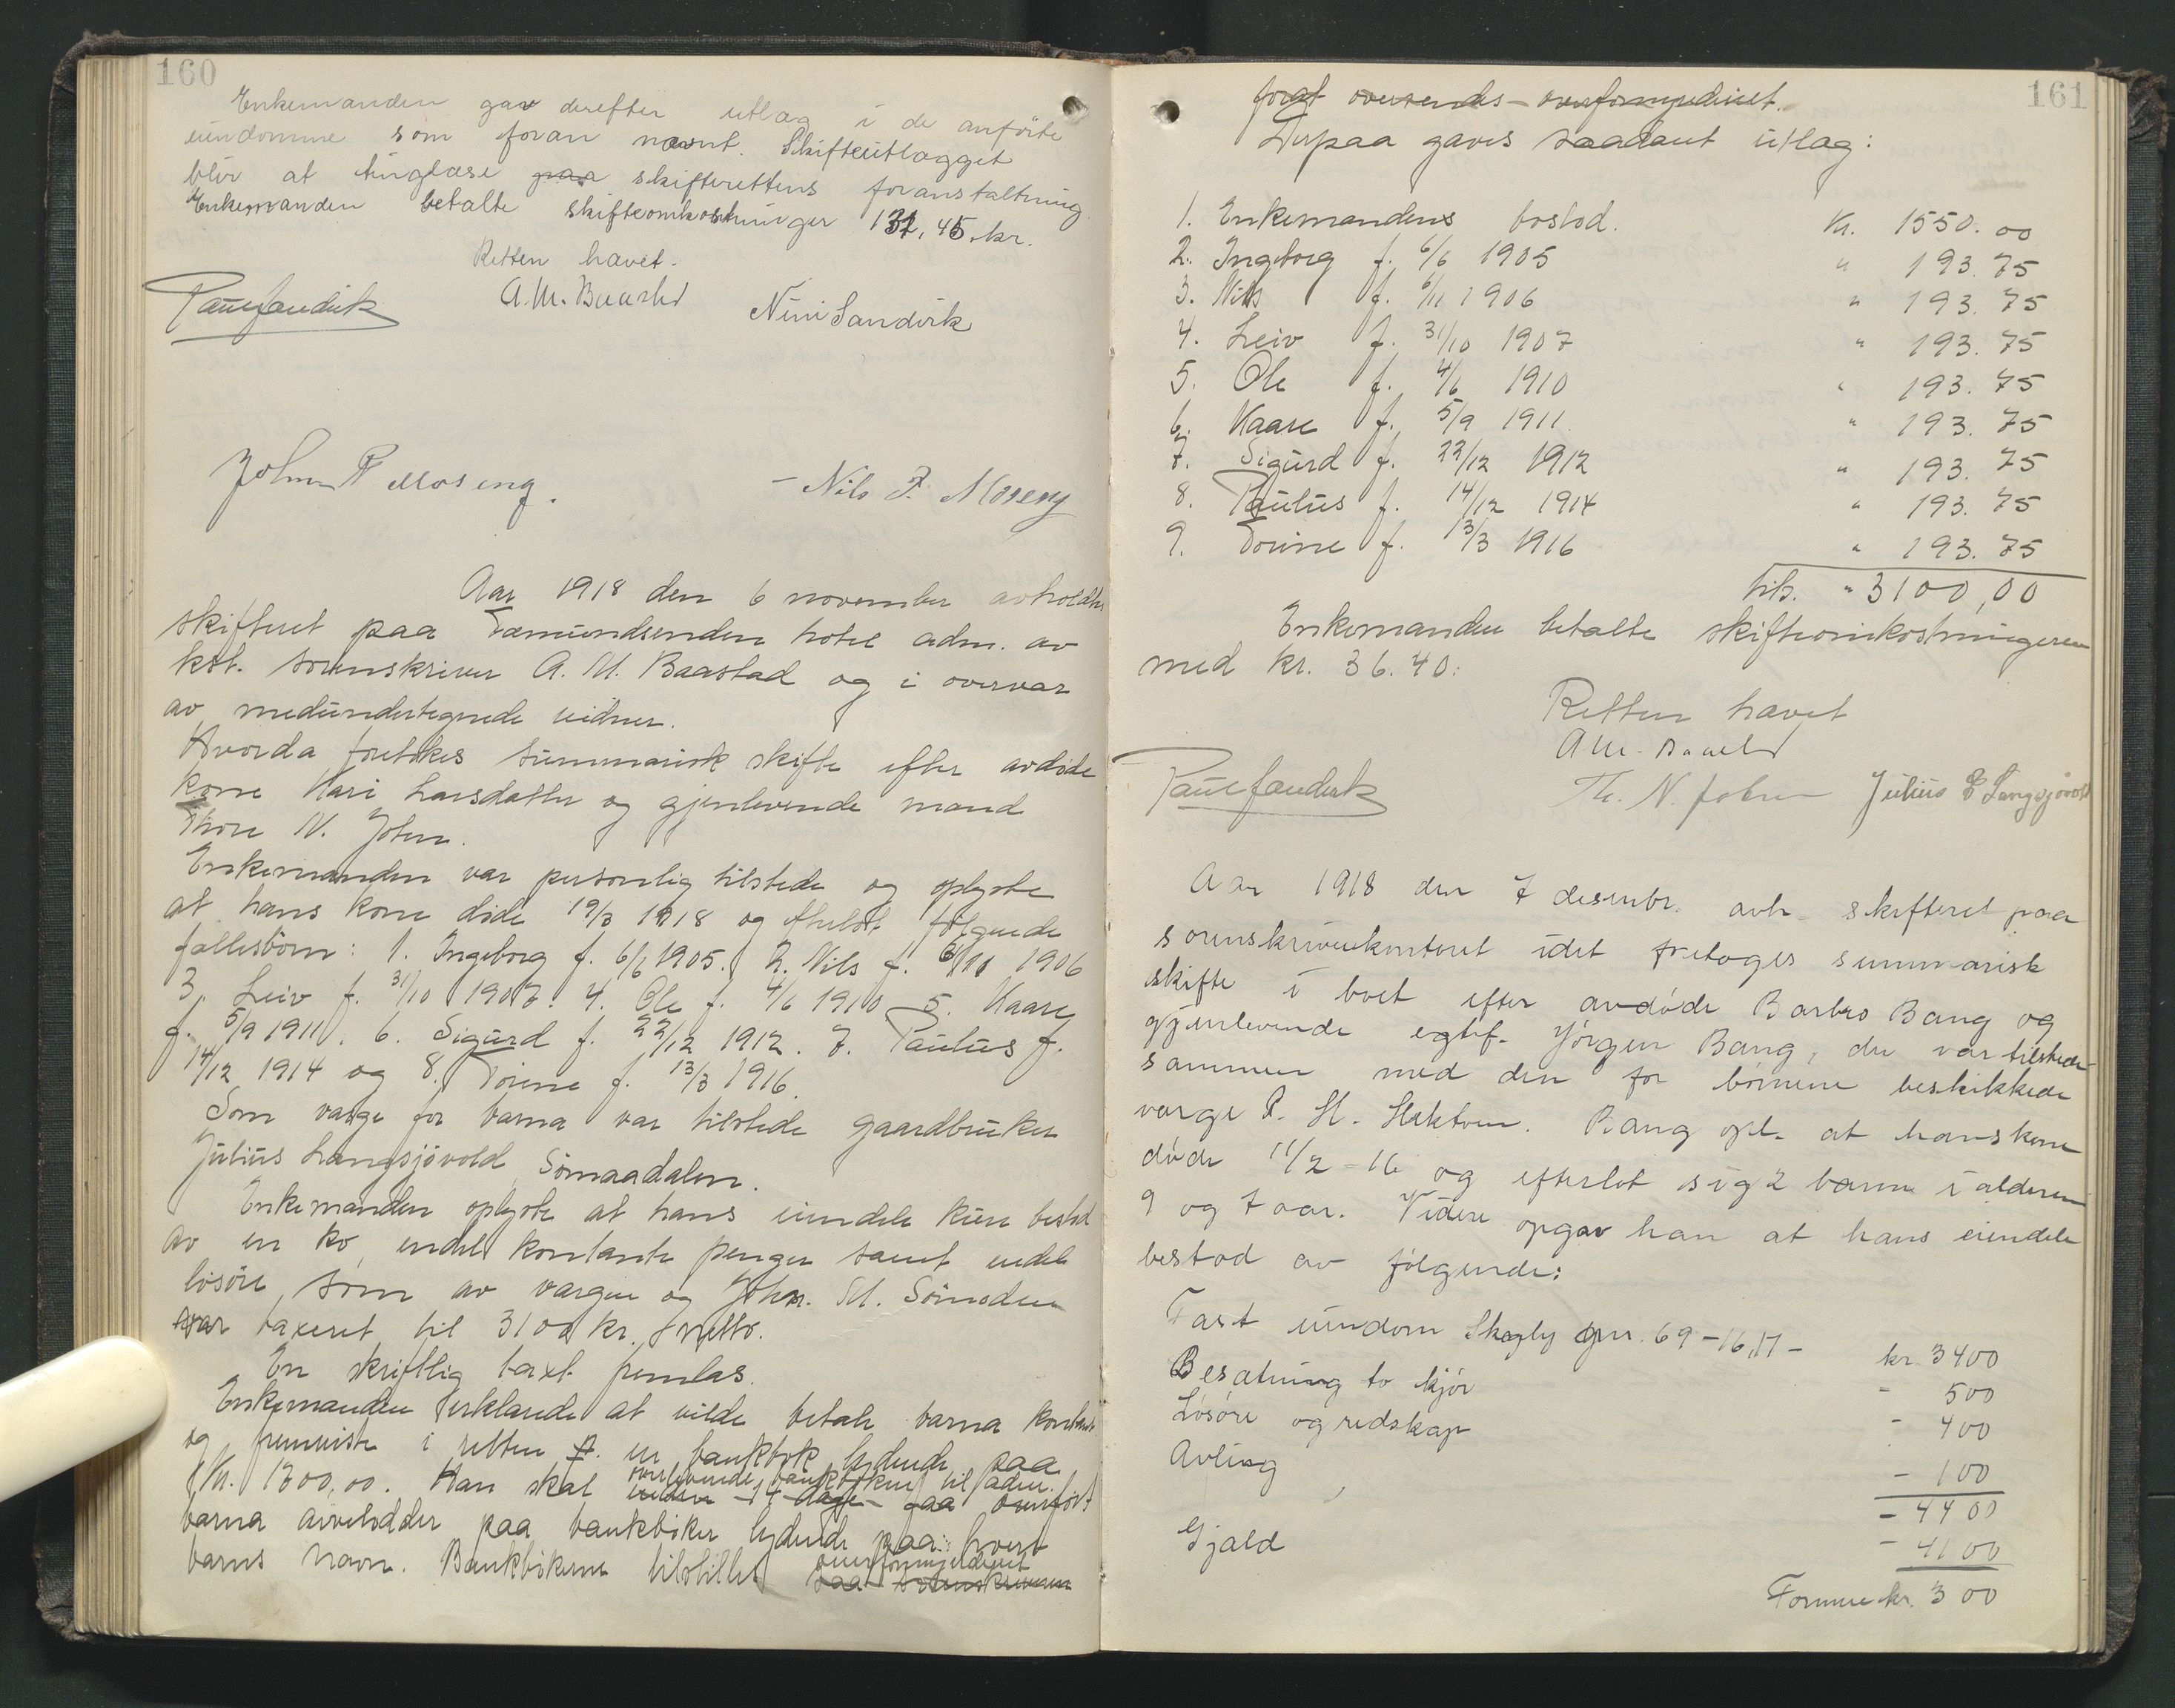 160
Enkemanden gav derefter utlæg i de anførte
eiendomme som foran nævnt. Skifteutlægget
blir at tinglæse paa skifterettens foranstaltning.
Enkemanden betalte skifteomkostninger 132,45 kr.
Retten hævet.
A.M. Baastad
Nini Sandvik
John P Moseng.
- Nils J. Moseng
Aar 1918 den 6 november avholdtes
skifteret paa Fæmundsenden hotel adm. av
kst. sorenskriver A. M. Baastad og i overvær
av medundertegnede vidner.
Hvorda foretokes summarisk skifte efter avdøde
kone Kari Larsdatter og gjenlevende mand
Thore N. John.
Enkemanden var personlig tilstede og oplyste
at hans kone døde 19/3 1918 og efterlot følgende
fællesbørn: 1. Ingeborg f. 6/6 1905. 2. Nils f. 6/11 1906
3. Leiv f. 31/10 1907. 4. Ole f. 4/6 1910 5. Kaare
f. 5/9 1911. 6. Sigurd f. 22/12 1912. 7. Paulus f.
14/12 1914 og 8. Torine f. 13/3 1916.
Som værge for barna var tilstede gaardbruker
Julius Langsjøvold, Sømaadalen.
Enkemanden oplyste at hans eiendele kun bestod
av en ko, endel kontante penger samt endel
løsøre, som av værgen og John. M. Sømoden
var taxeret til 3100 kr. netto.
En skriftlig taxt fremlas.
Enkemanden erklærede at vilde betale barna kontant
og fremviste i retten en bankbok lydende paa
Kr. 1300,00. Han skal inden 14 dage faa overført
overlevende bankbøkene til
barna arvelodder paa bankbøker lydende paa hvert
barns navn. Bankbøkerne tilstilles paa sorenskriveren
overformynderiet
161
forat oversendes overformynderiet.
Derpaa gaves saadant utlæg:
1. Enkemandens boslod. Kr. 1550.00
2. Ingeborg f. 6/6 1905 " 193.75
3. Nils f. 6/11 1906 " 193.75
4. Leiv f. 31/10 1907 " 193.75
5. Ole f. 4/6 1910 " 193.75
6. Kaare f. 5/9 1911 " 193.75
7. Sigurd f. 22/12 1912 " 193.75
8. Paulus f. 14/12 1914 " 193.75
9. Torine f. 13/3 1916 " 193.75
tils. " 3100,00
Enkemanden betalte skifteomkostningerne
med kr. 36.40.
Retten hævet
A.M. Baastad
Th. N. John Julius E Langsjøvold
Aar 1918 den 7 desembr. avh. skifteret paa
sorenskriverkontoret idet foretoges summarisk
skifte i boet efter avdøde Barbro Bang og
gjenlevende egtef. Jørgen Bang, der var tilstede
sammen med den for børnene beskikkede
værge P. H. Bang opl. at hans kone
døde 11/2 - 16 og efterlot sig 2 barn i alderen
9 og 7 aar. Videre opgav han at hans eiendele
bestod av følgende:
Fast eiendom Skogly gnr. 69-16,17 - kr. 3400
Besætning to kjør - 500
Løsøre og redskap - 400
Avling - 100
- 4400
Gjæld - 4100
Formue kr. 300